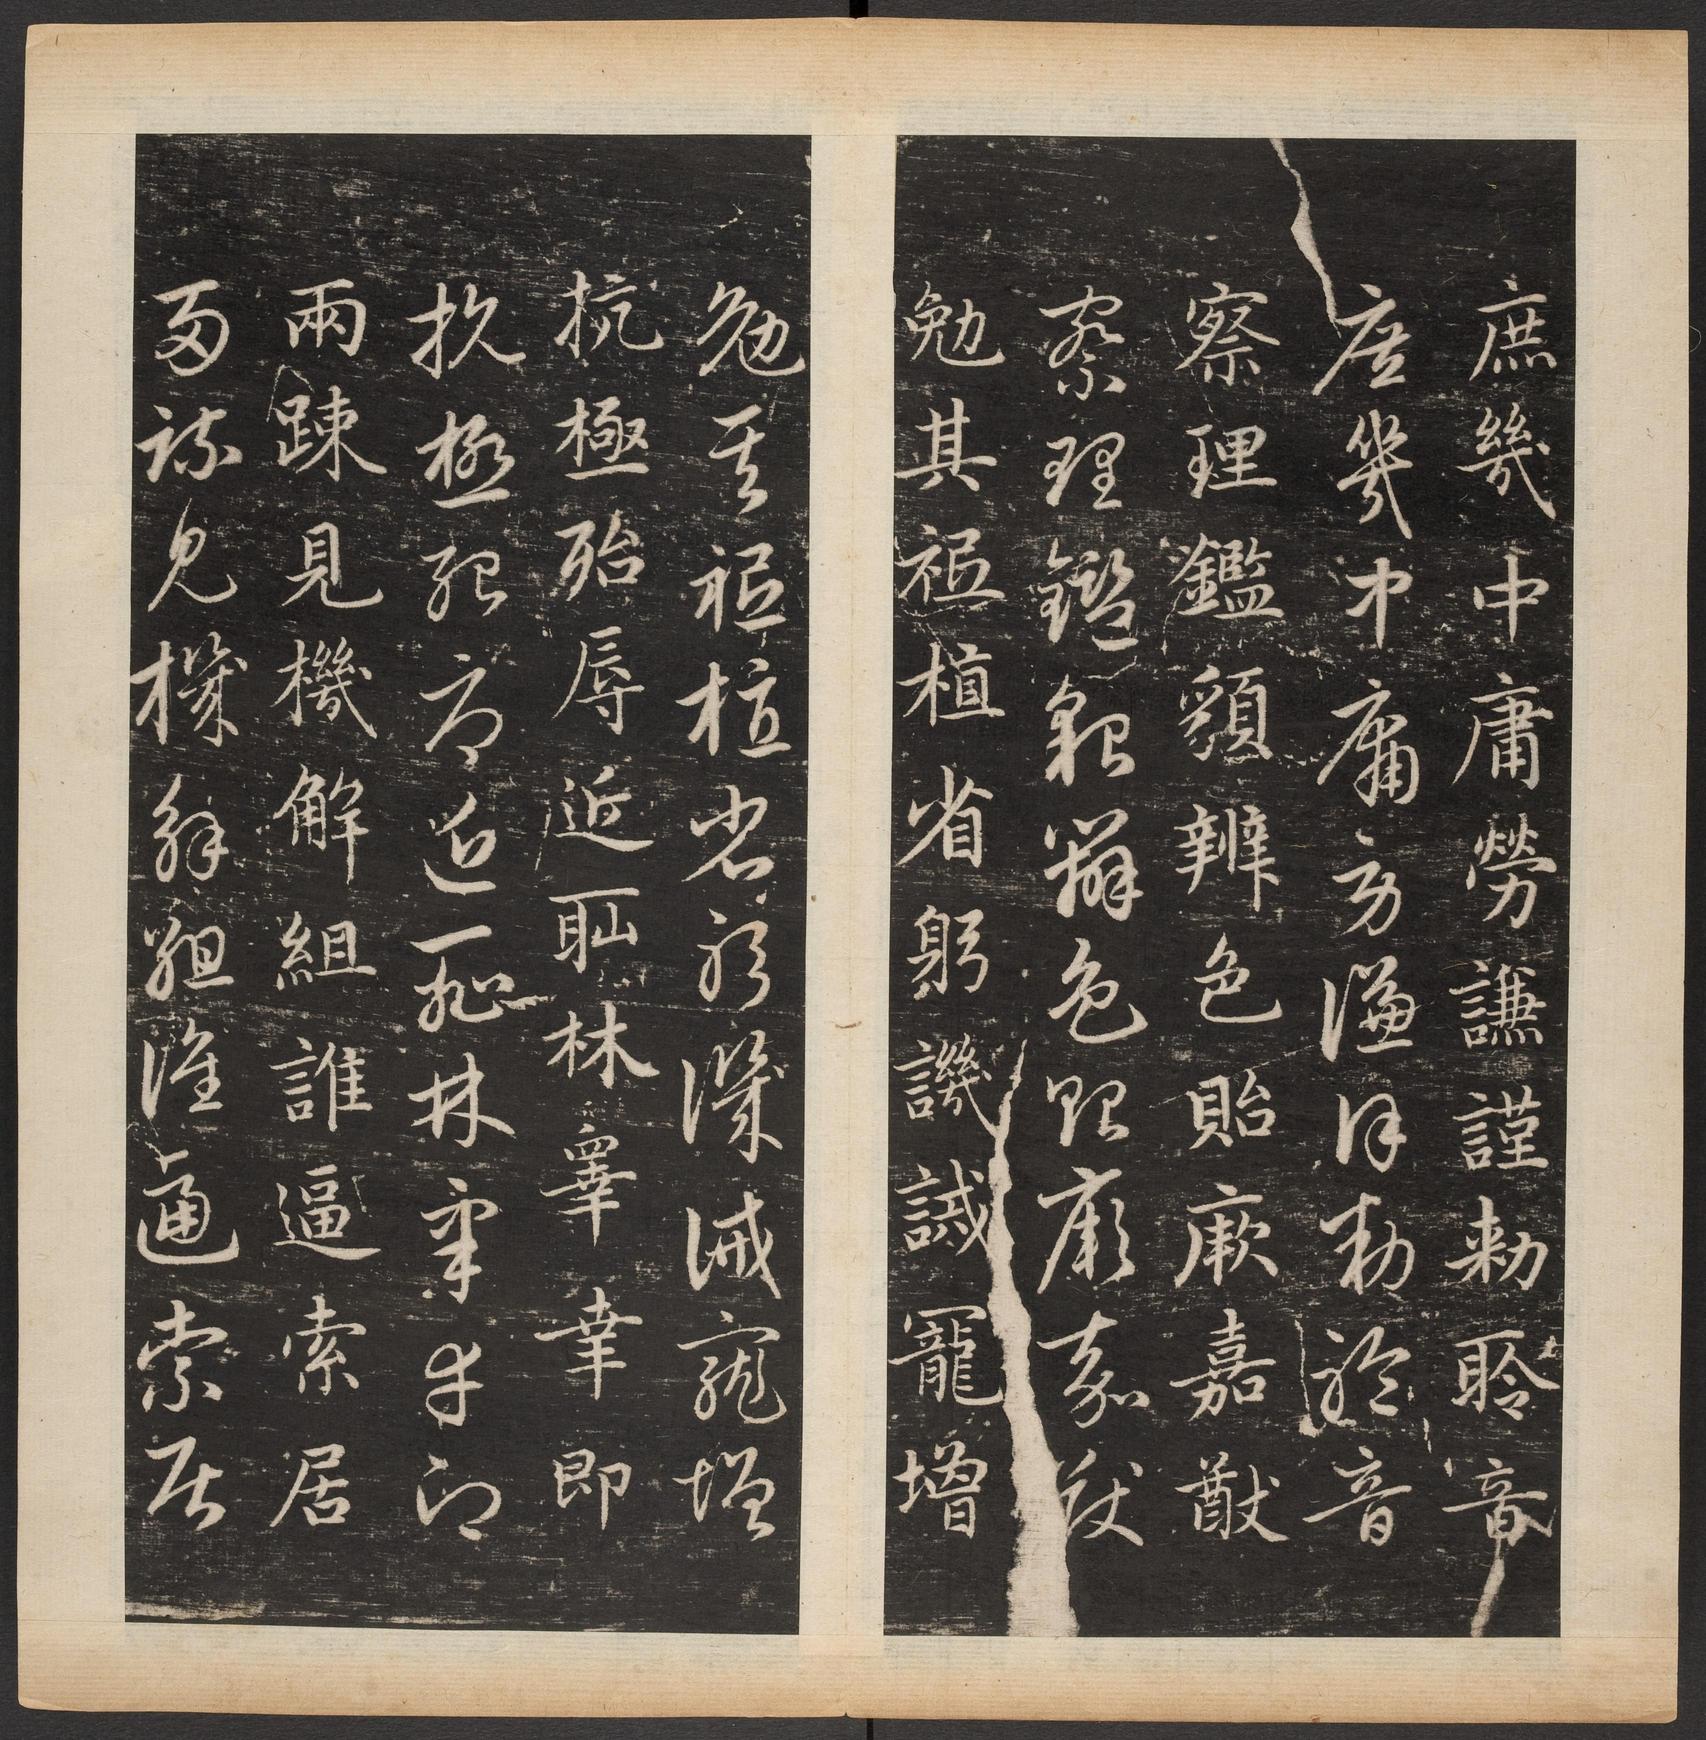 庶幾中庸勞謙謹勅聆音
庶幾中庸勞謙謹勅聆音
察理鑑貌辨色貽厥嘉猷
察理鑑貌辨色貽厥嘉猷
勉其祗植省躬譏誡寵增
勉其祗植省躬譏誡寵增
抗極殆辱近耻林皋幸即
抗極殆辱近耻林皋幸即
兩踈見機解組誰逼索居
兩疎見機解組誰逼索居